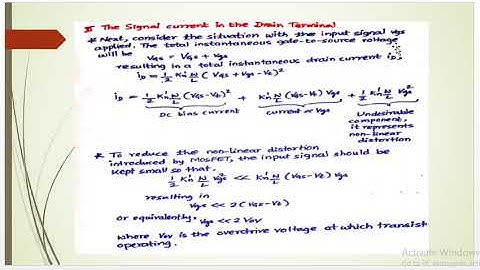 II The Signal current in the Drain Terminal
* Next, consider the situation with the input signal vgs
applied. The total instantaneous gate-to-source voltage
will be
vGS = VGS + vgs
resulting in a total instantaneous drain current iD,
iD = 1/2 Kn' W/L (VGS + vgs - Vt)²
iD = 1/2 Kn' W/L (VGS-Vt)² + Kn' W/L (VGS-Vt) vgs + 1/2 Kn' W/L vgs²
DC bias current
current ∝ vgs
Undesirable
component,
it represents
non-linear
distortion
* To reduce the non-linear distortion
introduced by MOSFET, the input signal should be
kept small so that.
1/2 Kn' W/L vgs² << Kn' W/L (VGS-Vt) vgs
resulting in
vgs << 2(VGS-Vt)
or equivalently, vgs << 2 VOV
where VOV is the overdrive voltage at which transist
operating.
Activate Windows